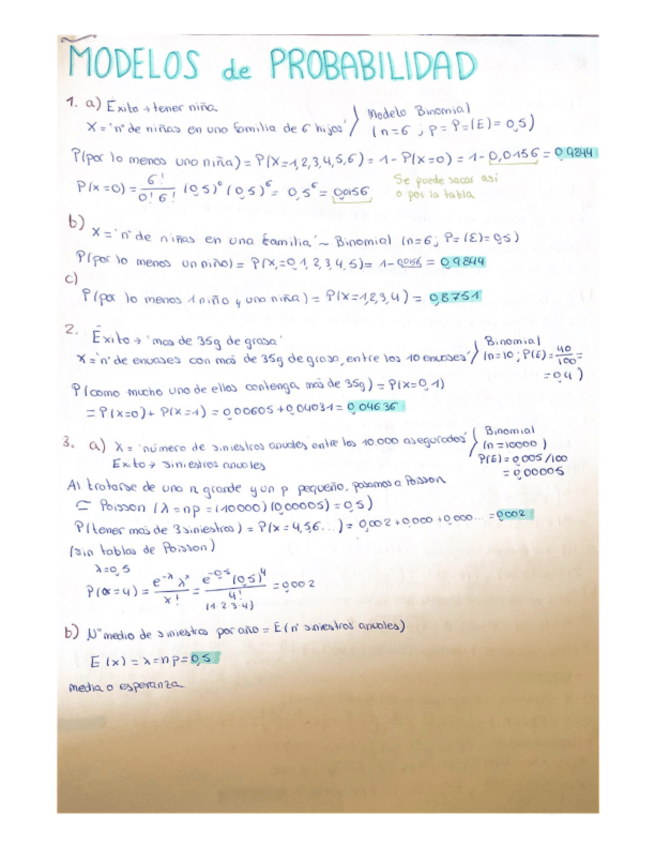 MODELOS de PROBABILIDAD
1. a) Éxito → tener niña
X = 'nº de niñas en una familia de 6 hijos' / Modelo Binomial
(n=6 ; p = P=(E) = 0,5)
P(por lo menos una niña) = P(X=1,2,3,4,5,6) = 1 - P(X=0) = 1 - 0,0156 = 0,9844
P(x=0) = 6!/0! 6! (0,5)⁰ (0,5)⁶ = 0,5⁶ = 0,0156
Se puede sacar así
o por la tabla
b) X = 'nº de niñas en una familia' ~ Binomial (n=6; P=(E)=0,5)
P(por lo menos un niño) = P(X=0,1,2,3,4,5) = 1 - 0,0156 = 0,9844
c)
P(por lo menos 1 niño y una niña) = P(X=1,2,3,4) = 0,8751
2. Éxito → 'mas de 35g de grasa'
X = 'nº de envases con más de 35g de grasa, entre los 10 envases' / Binomial
(n=10; P(E) = 40/100 =
= 0,4)
P(como mucho uno de ellos contenga más de 35g) = P(X=0,1)
= P(X=0) + P(X=1) = 0,00605 + 0,04031 = 0,04636
3. a) X = 'número de siniestros anuales entre los 10.000 asegurados' / Binomial
(n=10000)
Éxito → siniestros anuales
P(E) = 0,005/100
= 0,00005
Al tratarse de una n grande y un p pequeño, pasamos a Poisson
⊂ Poisson (λ = np = (10000)(0,00005) = 0,5)
P(tener mas de 3 siniestros) = P(X=4,5,6...) = 0,002 + 0,000 + 0,000... = 0,002
(sin tablas de Poisson)
λ=0,5
P(x=4) = e^-λ λ^x / x! = e^-0,5 (0,5)⁴ / 4! = 0,002
(1·2·3·4)
b) Nº medio de siniestros por año = E(nº siniestros anuales)
E(x) = λ = np = 0,5
media o esperanza